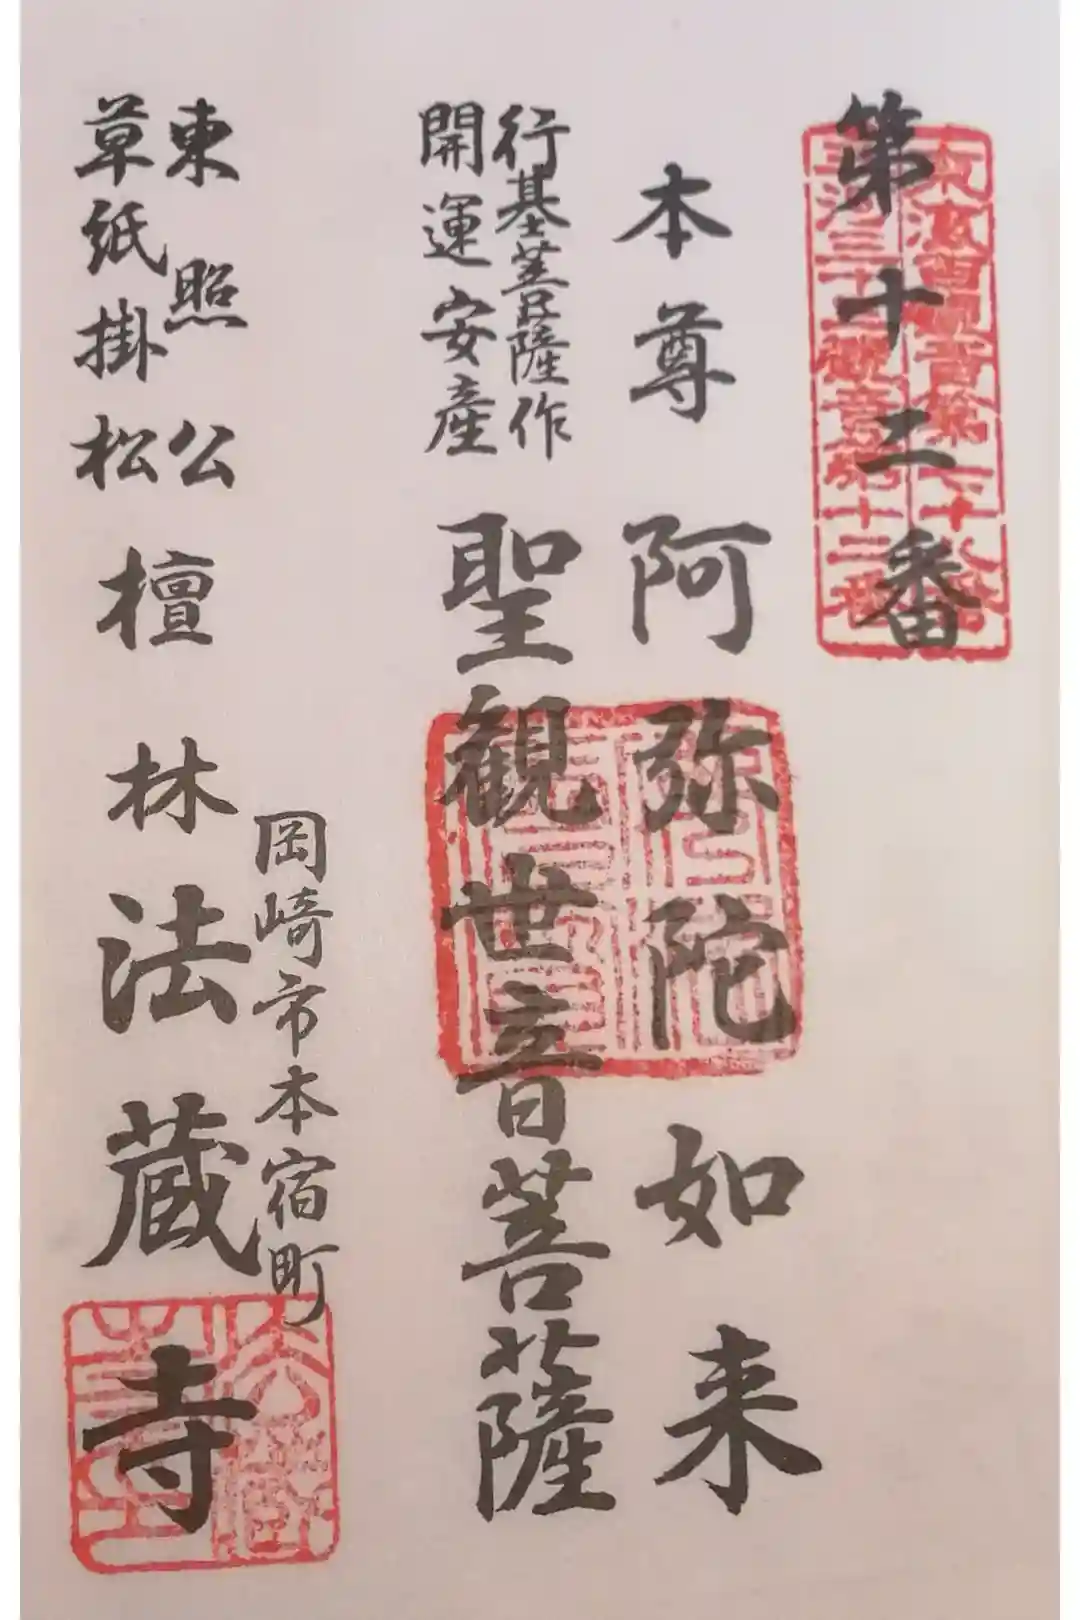 第十二番
本尊 阿弥陀如来
行基菩薩作
開運安産
聖観世音菩薩
岡崎市本宿町
東照公
草紙掛松
檀林法蔵寺